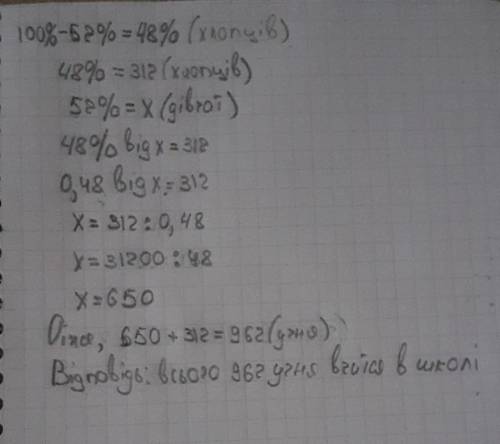 100%-52%=48% (хлопців)
48%=312 (хлопців)
52%=x (дівчої)
48% від x=312
0,48 від x=312
x=312:0,48
x=31200:48
x=650
Отже, 650+312=962 (учня)
Відповідь: всього 962 учня вчится в школі